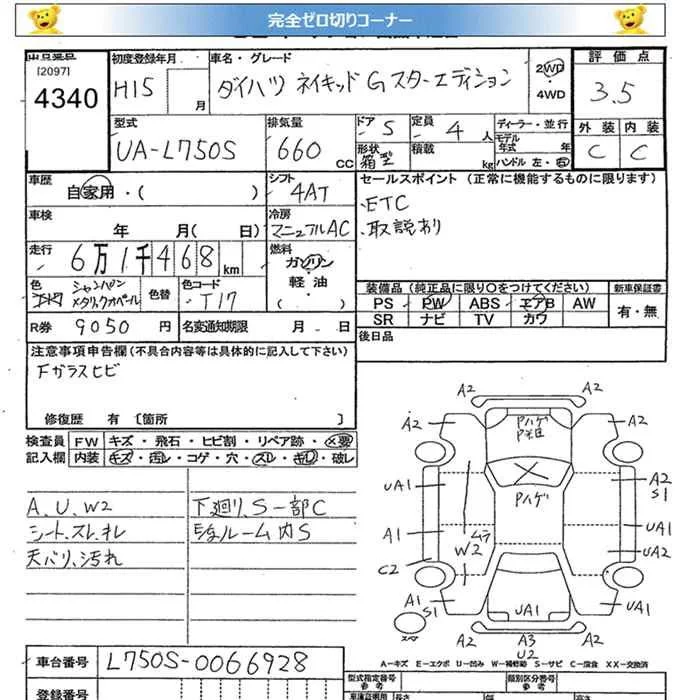 完全ゼロ切りコーナー
[2097]
4340
初度登録年月
H15
月
車名・グレード
ダイハツ ネイキッド Gスターエディション
2WD
4WD
評価点
3.5
外装 内装
C C
型式
UA-L750S
排気量
660 CC
ドア 5
形状 箱型
定員 4 人
積載 kg
ディーラー・並行
モデル年式 年
ハンドル 左・右
車歴
自家用・( )
シフト
4AT
セールスポイント (正常に機能するものに限ります)
・ETC
・取説あり
車検
年 月 ( 日)
冷房
マニュアルAC
走行
6万1千468 km
燃料
ガソリン
軽・油
( )
色
シャンパンメタリックオペール
色替
色コード
T17
装備品 (純正品に限り○をつけてください)
新車保証書
PS PW ABS エアB AW
SR ナビ TV カワ
有・無
R券 9050 円
名変通知期限 月 日
後日品
注意事項申告欄(不具合内容等は具体的に記入して下さい)
Fガラスヒビ
修復歴 有 〔箇所 〕
検査員記入欄
FW キズ・飛石・ヒビ割・リペア跡・X要
内装 キズ・汚レ・コゲ・穴・スレ・キレ・破レ
A.U.W2
シート.スレ.キレ
天バリ.汚れ
下廻リ.S一部C
ルーム内S
A2 A2
A2 A2
Pハゲ
P美田
UA1
A2
S1
Pハゲ
A1
ムラ
W2
UA1
UA2
C2
A1
S1
UA1
A1
スペア
A2 A3 A2
U2
A-キズ E-エクボ U-凹み W-補修跡 S-サビ C-腐食 XX-交換済
車台番号
L750S-0066928
型式指定番号
参考
類別区分番号
参考
登録番号
車庫証明用
参考
長さ
幅
高さ